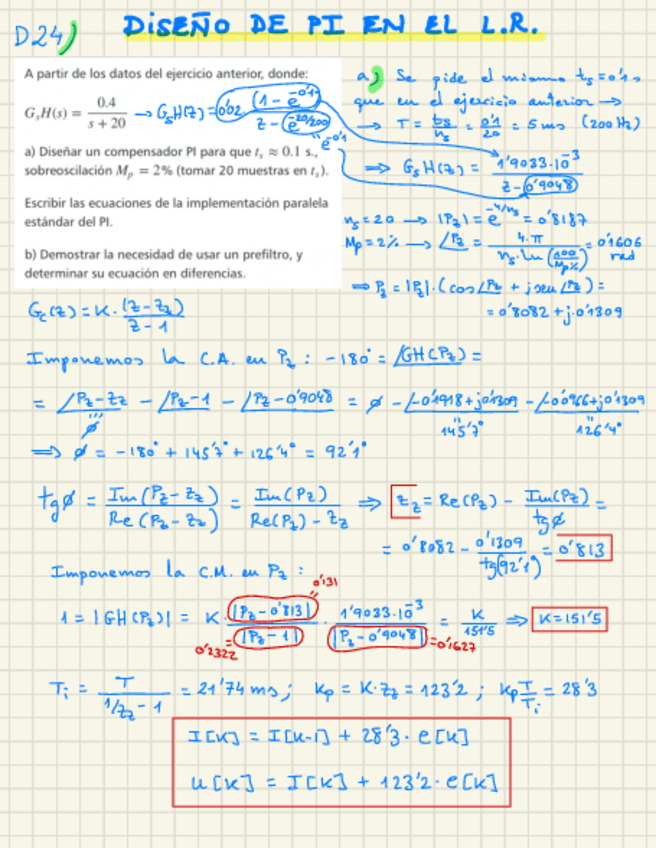 D24) DISEÑO DE PI EN EL L.R.
A partir de los datos del ejercicio anterior, donde:
G_sH(s) = 0.4 / (s + 20) → G_sH(z) = 0'02 · (1 - e^-0'1) / (z - e^-20/200)
" e^-0'1
a) Diseñar un compensador PI para que t_s ≈ 0.1 s.,
sobreoscilación M_p = 2% (tomar 20 muestras en t_s).
Escribir las ecuaciones de la implementación paralela
estándar del PI.
b) Demostrar la necesidad de usar un prefiltro, y
determinar su ecuación en diferencias.
a) Se pide el mismo t_s = 0'1 s
que en el ejercicio anterior →
→ T = t_s/n_s = 0'1/20 = 5 ms (200 Hz)
⇒ G_sH(z) = 1'9033·10^-3 / (z - 0'9048)
n_s = 20 → |P_z| = e^-4/n_s = 0'8187
M_p = 2% → ∠P_z = 4·π / (n_s · ln(100/M_p%)) = 0'1606 rad
⇒ P_z = |P_z|·(cos∠P_z + j sen∠P_z) =
= 0'8082 + j·0'1309
G_c(z) = K · (z - z_z) / (z - 1)
Imponemos la C.A. en P_z : -180° = ∠GH(P_z) =
= ∠P_z - z_z - ∠P_z - 1 - ∠P_z - 0'9048 = ø - ∠-0'1918 + j0'1309 - ∠-0'0966 + j0'1309
" ø " 145'7° " 126'4°
⇒ ø = -180° + 145'7° + 126'4° = 92'1°
tg ø = Im(P_z - z_z) / Re(P_z - z_z) = Im(P_z) / (Re(P_z) - z_z) ⇒ z_z = Re(P_z) - Im(P_z)/tg ø =
= 0'8082 - 0'1309/tg(92'1°) = 0'813
Imponemos la C.M. en P_z :
0'131
1 = |GH(P_z)| = K · |P_z - 0'813| / |P_z - 1| · 1'9033·10^-3 / |P_z - 0'9048| = K/151'5 ⇒ K = 151'5
0'2322 = =0'1627
T_i = T / (1/z_z - 1) = 21'74 ms; K_p = K·z_z = 123'2 ; K_p T/T_i = 28'3
I[k] = I[k-1] + 28'3 · e[k]
u[k] = I[k] + 123'2 · e[k]